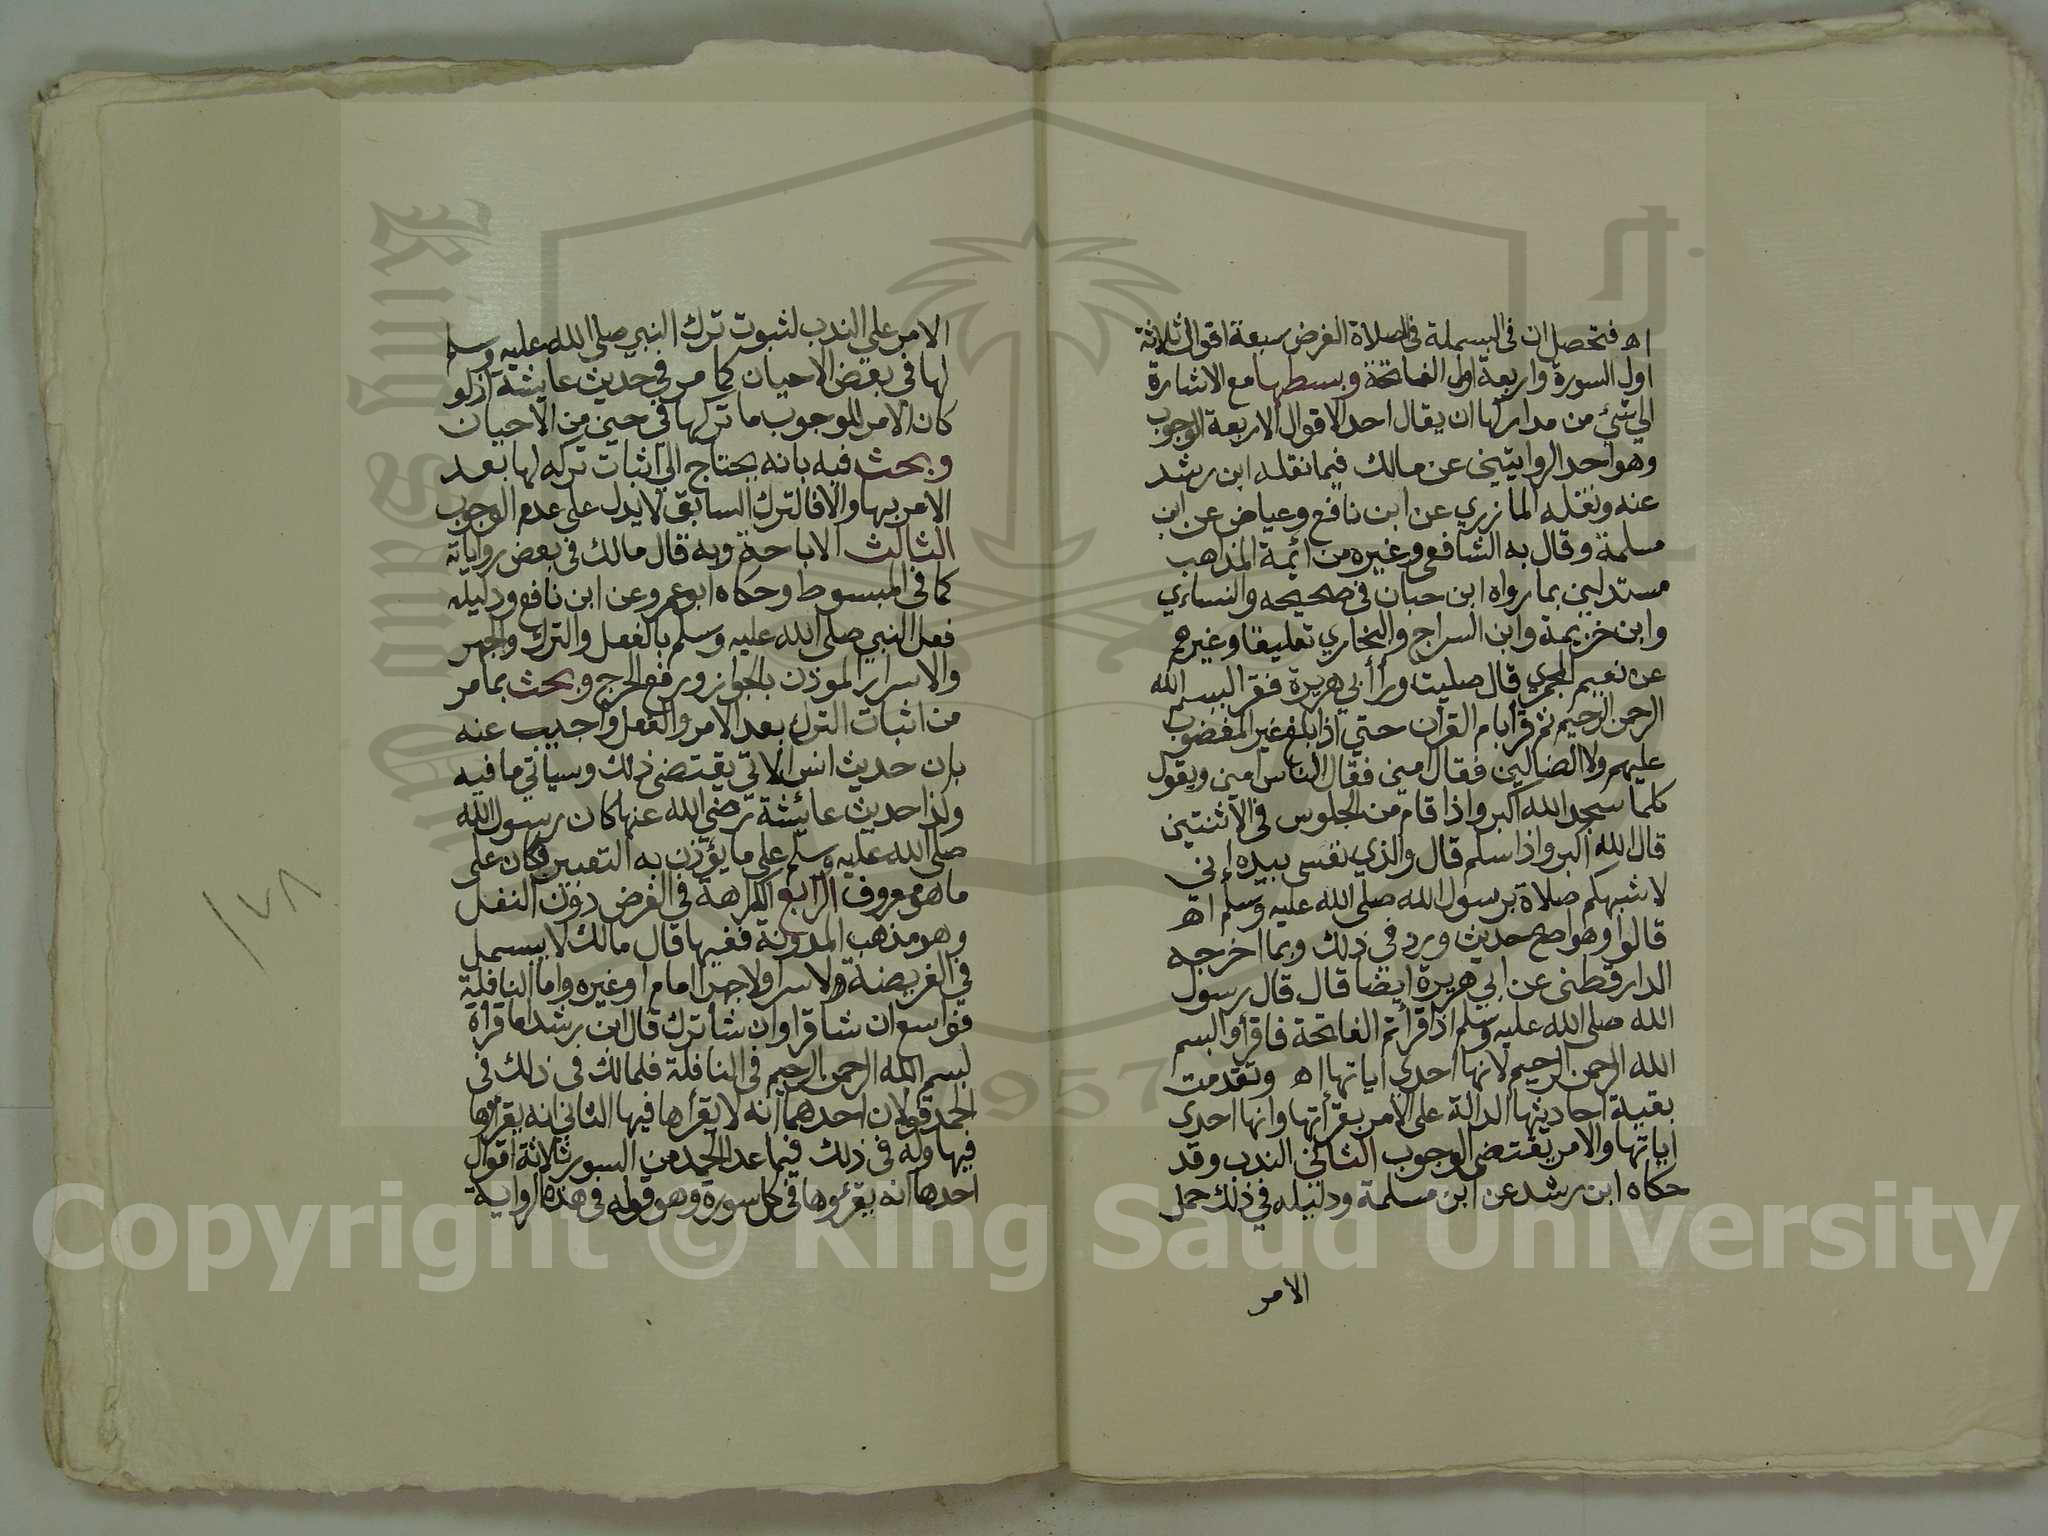 اه فتحصل ان في البسملة في الصلاة الفرض سبعة اقوال ثلاثة
اول السورة واربعة اول الفاتحة وبسطها مع الاشارة
الي شيء من مداركها ان يقال احد الاقوال الاربعة الوجوب
وهو احد الروايتين عن مالك فيما نقله ابن رشد
عنه ونقله المازري عن ابن نافع وعياض عن ابن
مسلمة وقال به الشافعي وغيره من ائمة المذاهب
مستدلين بما رواه ابن حبان في صحيحه والنساءي
وابن خزيمة وابن السراج والبخاري تعليقا وغيرهم
عن نعيم المجمر قال صليت ورا أبي هريرة فقرا بسم الله
الرحمن الرحيم ثم قرا بام القرآن حتي اذا بلغ غير المغضوب
عليهم ولا الضالين فقال امين فقال الناس امين ويقول
كلما سجد الله اكبر واذا قام من الجلوس في الاثنتين
قال الله اكبر واذا سلم قال والذي نفسي بيده إني
لاشبهكم صلاة برسول الله صلى الله عليه وسلم اه
قالوا وهو اصح حديث ورد في ذلك وبما اخرجه
الدارقطني عن ابي هريرة ايضا قال قال رسول
الله صلى الله عليه وسلم اذا قرأتم الفاتحة فاقرأوا بسم
الله الرحمن الرحيم لانها احدي اياتها اه وتقدمت
بقية احاديثها الدالة على الامر بقرأتها وانها احدي
اياتها والامر يقتضي الوجوب الثاني الندب وقد
حكاه ابن رشد عن ابن مسلمة ودليله في ذلك حمل
الامر
الامر علي الندب لثبوت ترك النبي صلي الله عليه وسلم
لها في بعض الاحيان كما مر في حديث عايشة اذ لو
كان الامر للوجوب ما تركها في حين من الاحيان
وبحث فيه بانه يحتاج الي اثبات تركه لها بعد
الامر بها والا فالترك السابق لا يدل على عدم الوجوب
الثالث الاباحة وبه قال مالك في بعض رواياته
كما في المبسوط وحكاه ابو عمر وعن ابن نافع ودليله
فعل النبي صلى الله عليه وسلم بالفعل والترك والجهر
والاسرار الموذن بالجواز ورفع الحرج وبحث بما مر
من اثبات الترك بعد الامر والفعل واجيب عنه
بان حديث انس الاتي يقتضي ذلك وسياتي ما فيه
ولذا حديث عائشة رضي الله عنها كان رسول الله
صلى الله عليه وسلم علي ما يؤذن به التعبير بكان على
ما هو معروف الرابع الكراهة في الفرض دون النفل
وهو مذهب المدونة ففيها قال مالك لا يبسمل
في الفريضة ولا سرا ولا جهرا امام او غيره واما النافلة
فواسع ان شا قرا وان شا ترك قال ابن رشد اما قراة
بسم الله الرحمن الرحيم في النافلة فلمالك في ذلك في
الحمد قولان احدهما انه لا يقرأها فيها الثاني انه يقرؤها
فيها وله في ذلك فيما عدا الحمد من السور ثلاثة اقوال
احدها انه يقرءوها في كل سورة وهو قوله في هذه الرواية
١٧٨
King Saud University
1957
Copyright © King Saud University